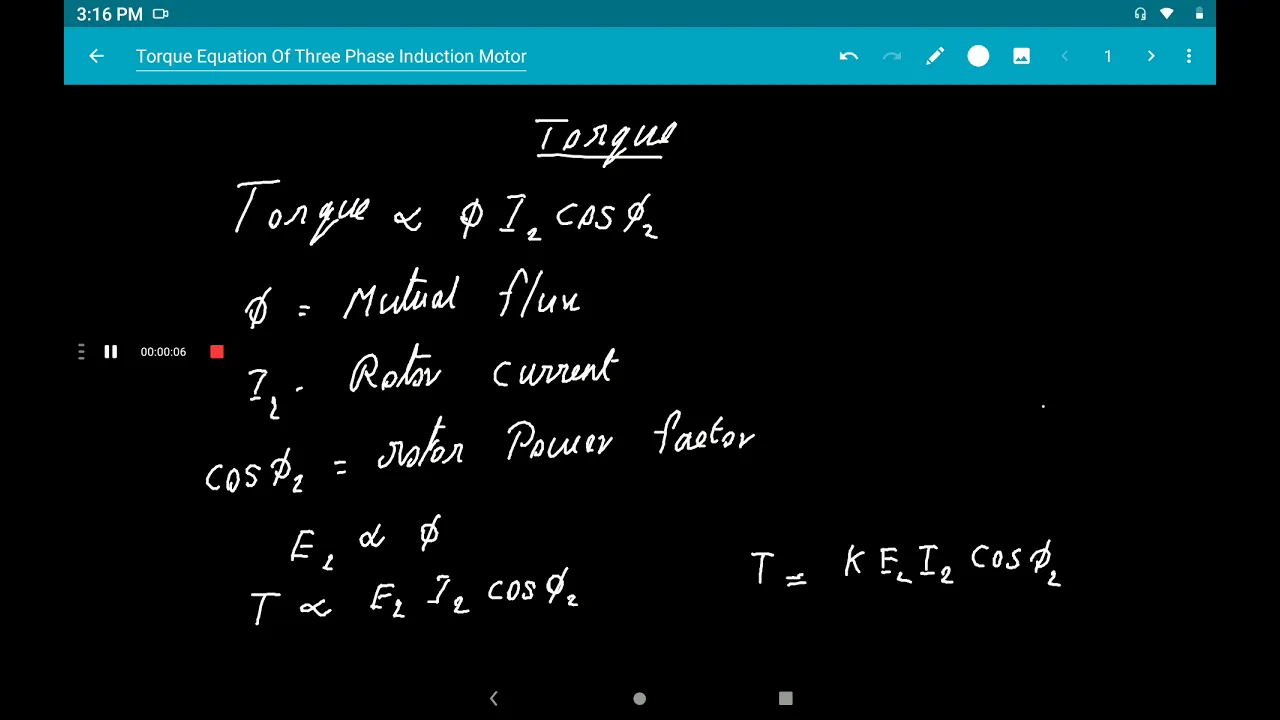 3:16 PM
Torque Equation Of Three Phase Induction Motor
1
Torque
Torque ∝ ϕ I₂ cosϕ₂
ϕ = Mutual flux
00:00:06
I₂ - Rotor current
cosϕ₂ = rotor Power factor
E₂ ∝ ϕ
T ∝ E₂ I₂ cosϕ₂
T = K E₂ I₂ cosϕ₂